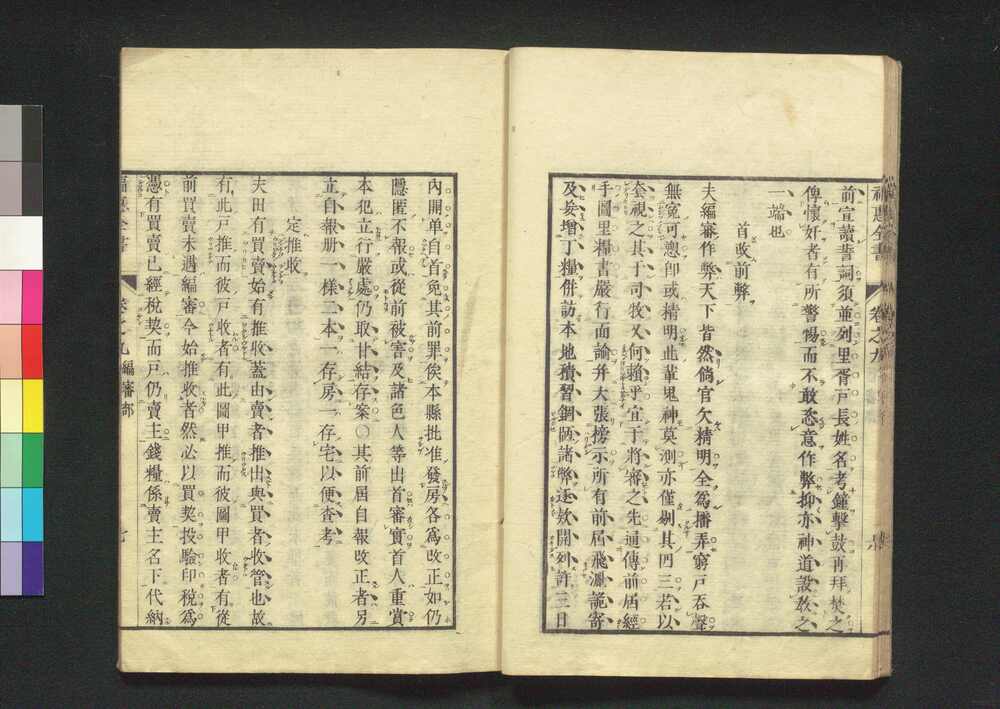 前宣讀誓詞須並列里胥戸長姓名考鐘擊鼓再拜焚之
俾懷奸者有所警惕而不敢恣意作弊抑亦神道設教之
一端也
首改前弊
夫編審作弊天下皆然倘官欠精明全為播弄窮戸吞聲
無寃可愬卽或精明此輩鬼神莫測亦僅剔其四三若以
套視之其于司牧又何賴乎宜于將審之先通傳前屆經
手圖里糧書嚴行面諭并大張榜示所有前屆飛灑詭寄
及妄增丁糧併訪本地積習錮陋諸弊逐款開列許三日
內開单自首免其前罪俟本縣批准發房各為改正如仍
隱匿不報或從前被害及諸色人等出首審實首人重賞
本犯立行嚴處仍取甘結存案○其前屆自報改正者另
立自報册一様二本一存房一存宅以便查考
定推收
夫田有買賣始有推收蓋由賣者推出與買者收管也故
有此戸推而彼戸收者有此圖甲推而彼圖甲收者有從
前買賣未遇編審今始推收者然必以買契投驗印稅為
憑有買賣已經稅契而戸仍賣主錢糧係賣主名下代納
福惠全書
卷之九
福惠全書
卷之九
編審部
七